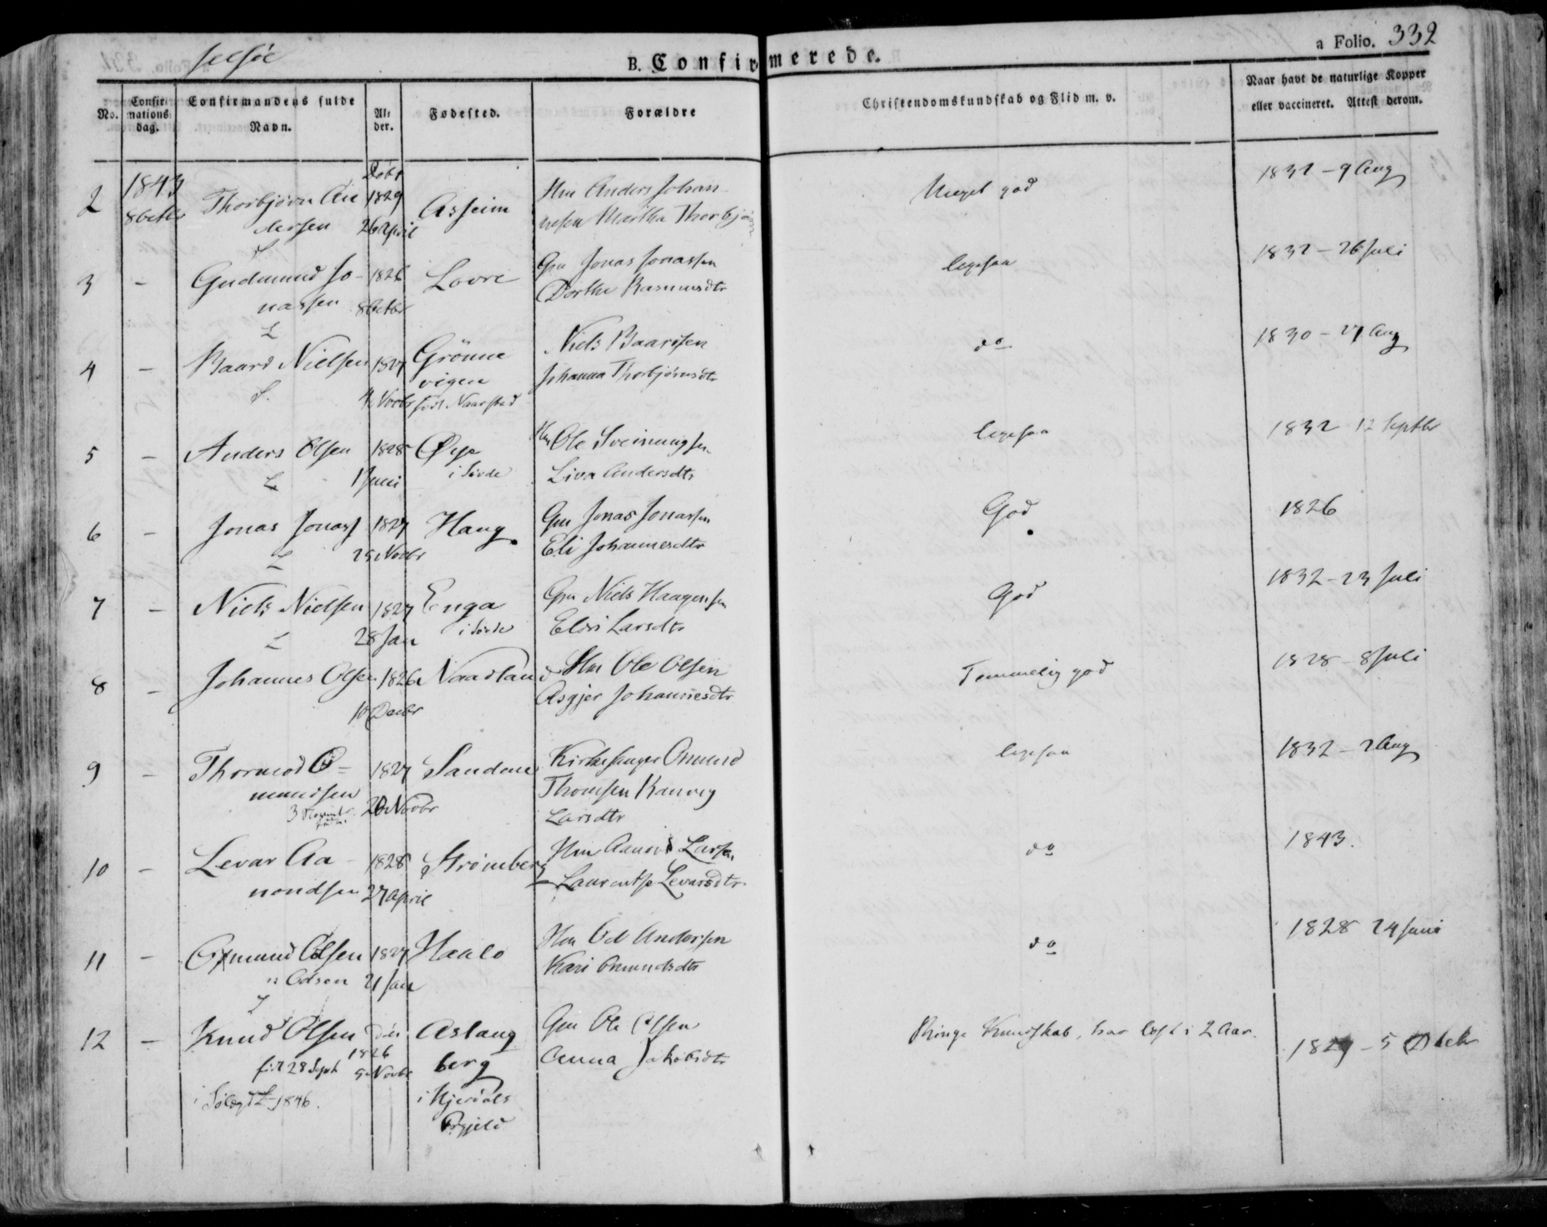 B. Confirmerede.
a Folio. 332
No.
Confirmations dag.
Confirmandens fulde Navn.
Alder.
Fødested.
Forældre
Christendomskundskab og Flid m. v.
Naar havt de naturlige Kopper eller vaccineret. Attest derom.
1843
Døbt
2 8 Octbr Thorbjørn An 1829 Asheim Hm Anders Johan Meget god 1832 - 9 Aug
dersen 26 April nesen Martha Thorbjørn
3 - Gudmund Jo- 1826 Lovre Gm Jonas Jonassen ligesaa 1832 - 26 Juli
nassen 8 Octbr Dorthe Rasmusdtr
4 - Baard Nielsen 1827 Grønne Niels Baardsen do 1830 - 27 Aug
vigen Johanna Thorbjørnsdtr
4 Novbr
5 - Anders Olsen 1828 Øye Hm Ole Sveinungsen ligesaa 1832 12 Septbr
1 Juni i Sirde Liva Andersdtr
6 - Jonas Jonass 1827 Haug Gm Jonas Jonassen God 1826
25 Novbr Eli Johannesdtr
7 - Niels Nielsen 1827 Enga Gm Niels Haagensen God 1832 - 23 Juli
28 Jan i Sirde Eldri Larsdtr
8 - Johannes Olsen 1826 Naadland Hm Ole Olsen Temmelig god 1828 - 8 Juli
10 Decbr Asgjer Johannesdtr
9 - Thormod O- 1827 Sandene Kirkesanger Omund ligesaa 1832 - 2 Aug
mundsen 20 Novbr Thomsen Ranveg
Larsdtr
10 - Levar Aa- 1828 Strømberg Hm Aanond Larsen do 1843.
nondsen 27 April Laurentse Levarsdtr
11 - Omund Olsen 1827 Haalo Hm Ole Andersen do 1828 24 Juni
21 Jan Kari Omundsdtr
12 - Knud Olsen 1826 Aslang Gm Ole Olsen Ringe Kundskab, har læst i 2 Aar. 1829 - 5 Octbr
28 Sept 5 Novbr berg Anna Jakobsdtr
1846. i Hjerdals